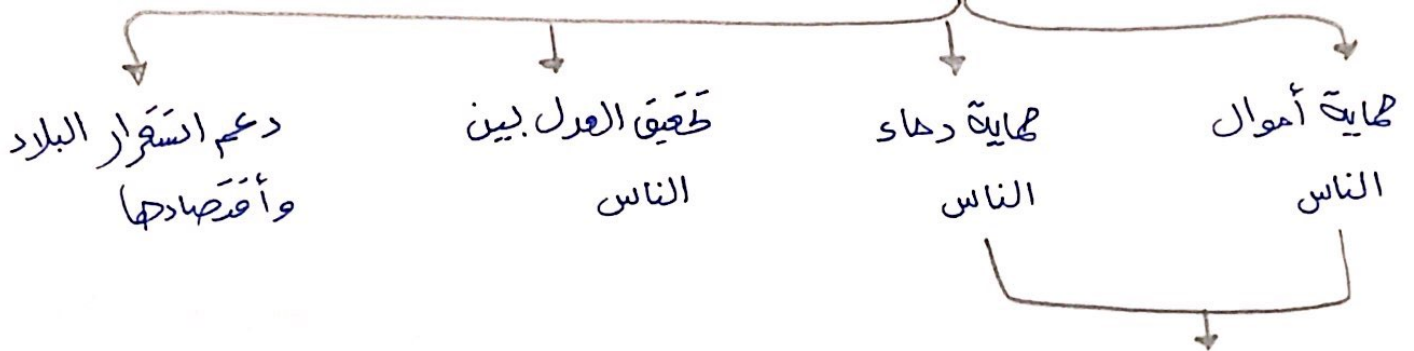 حماية أموال
الناس
حماية دماء
الناس
تحقيق العدل بين
الناس
دعم استقرار البلاد
وأقتصادها